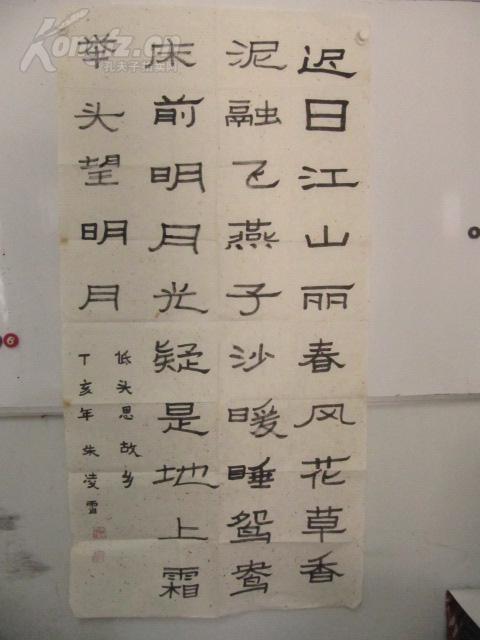 迟日江山丽春风花草香
泥融飞燕子沙暖睡鸳鸯
床前明月光疑是地上霜
举头望明月
低头思故乡
丁亥年 朱凌雪
孔夫子拍卖网
6